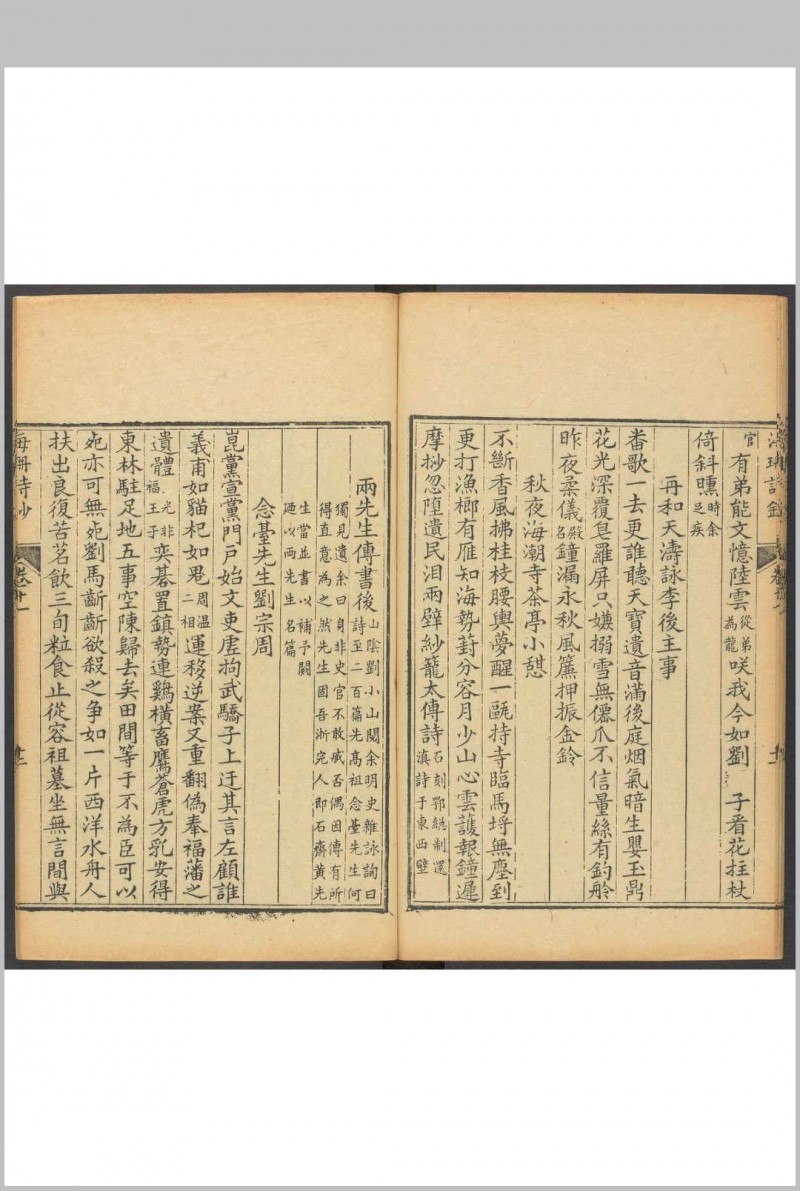 官有弟能文憶陸雲從弟為龍咲我今如劉 子看花拄杖
倚斜曛時余足疾
再和天濤詠李後主事
畨歌一去更誰聽天寶遺音滿後庭烟氣暗生嬰玉鼎
花光深覆皂羅屏只嫌搦雪無僊爪不信量絲有釣舲
昨夜柔儀殿名鐘漏永秋風簾押振金鈴
秋夜海潮寺茶亭小憇
不斷香風拂桂枝腰輿夢醒一甌持寺臨馬埒無塵到
更打漁榔有雁知海勢葑分容月少山心雲護報鐘遲
摩挱忽墮遺民泪兩壁紗籠太傅詩石刻鄂總制還滇詩于東西壁
兩先生傳書後山陰劉小山閱余明史雜詠詢曰詩至二百篇先高祖念臺先生何
獨見遺余曰身非史官不敢臧否偶因傳有所得直意為之然先生固吾浙完人即石齋黃先
生當並書以補予闕廼以兩先生名篇
念臺先生劉宗周
崑黨宣黨門戶始文吏虗拘武驕子上迂其言左顧誰
義甫如貓杞如鬼周溫二相運移逆案又重翻偽奉福藩之
遺體福王非光子奕碁置鎮勢連鷄橫畜鷹蒼虎方乳安得
東林駐足地五事空陳歸去矣田間等于不為臣可以
𣦸亦可無𣦸劉馬齗齗欲殺之爭如一片西洋水舟人
扶出良復苦茗飲三旬粒食止從容祖墓坐無言間與